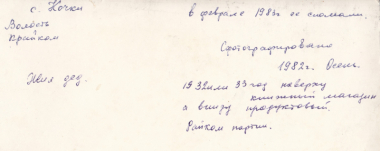 с. Кочки
Волость
Крайком
Жил дед.
в феврале 1983г ее сломали.
Сфотографировано
1982г. Осень.
1932 или 33 год наверху
книжный магазин
а внизу продуктовый.
Райком партии.